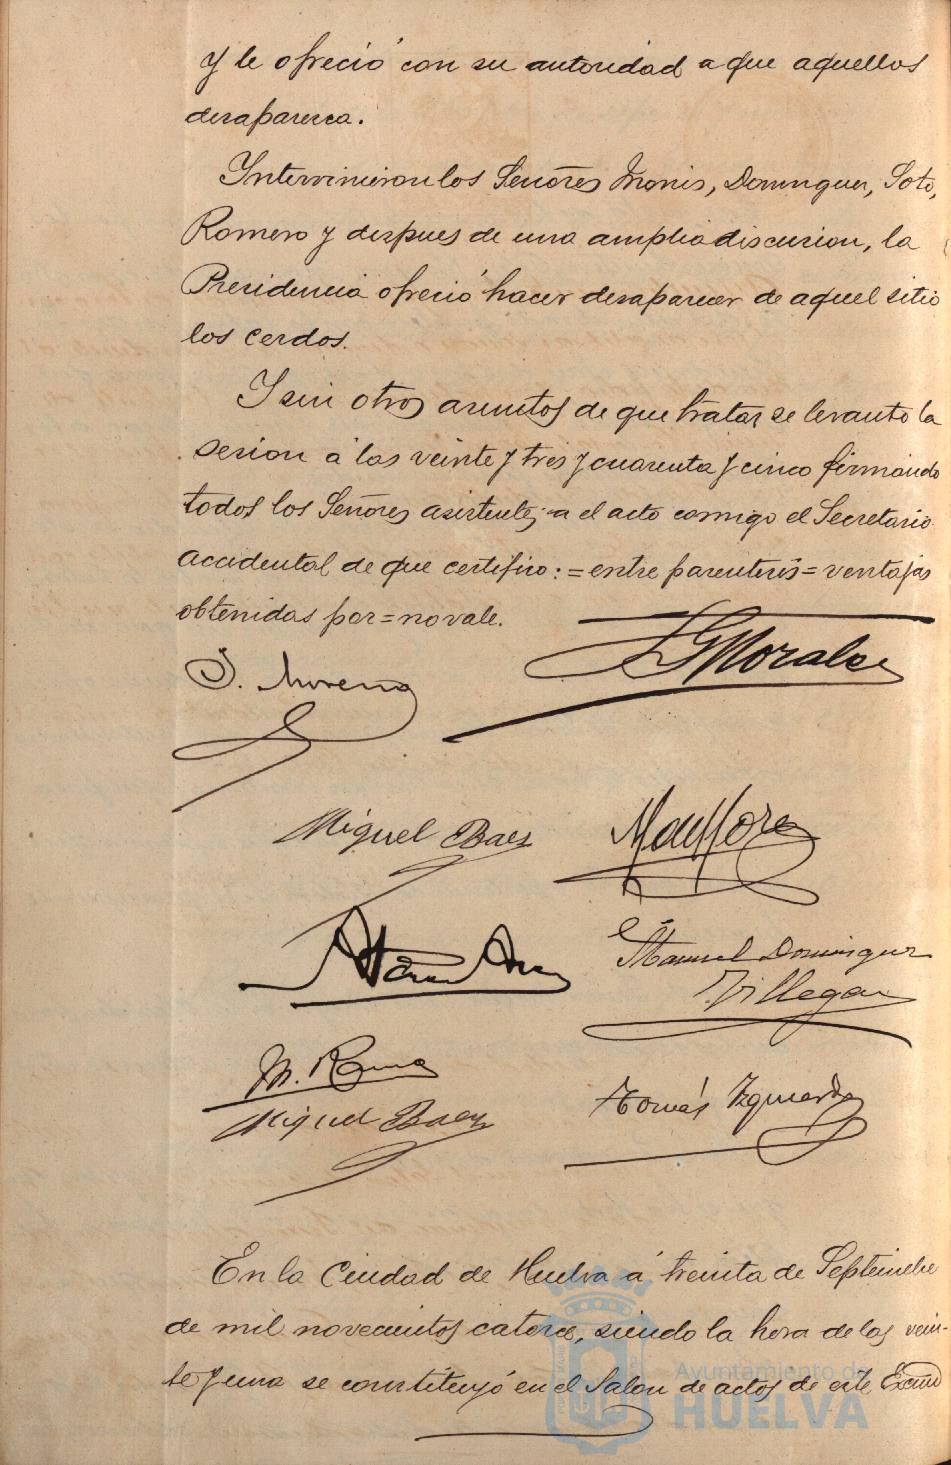 y le ofreció con su autoridad a que aquellos
desaparezca.
Intervinieron los Señores Monis, Dominguez, Soto,
Romero y despues de una amplia discusion, la
Presidencia ofreció hacer desaparecer de aquel sitio
los cerdos.
Y sin otros asuntos de que tratar se levantó la
sesion á las veinte y tres y cuarenta y cinco firmando
todos los Señores asistentes a el acto conmigo el Secretario
accidental de que certifico: = entre parentesis = ventajas
obtenidas por = no vale.
J. Moreno
Morales
Miguel Baez
Manuel Dominguez
Villegas
M. Romero
Miguel Baez
Tomás Yzquierdo
En la Ciudad de Huelva á treinta de Septiembre
de mil novecientos catorce, siendo la hora de las vein-
te y una se constituyó en el Salon de actos de este Excmo
Ayuntamiento de
HUELVA